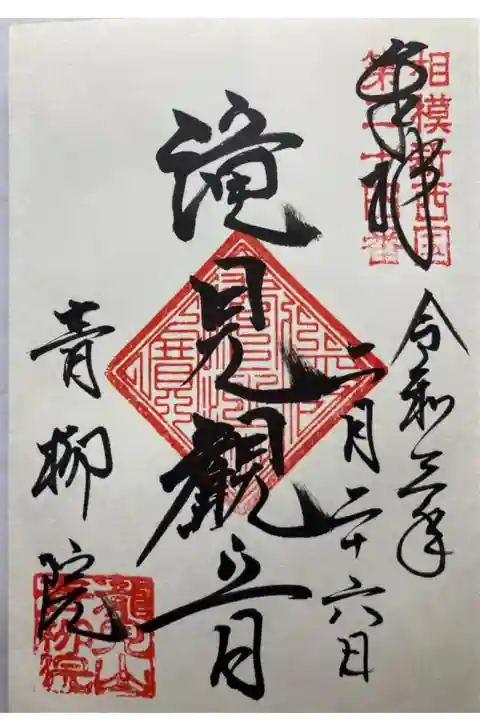 相模新西国
第二十四番
奉拝
令和三年
二月二十六日
滝見観音
青柳院
龍見山
青柳院